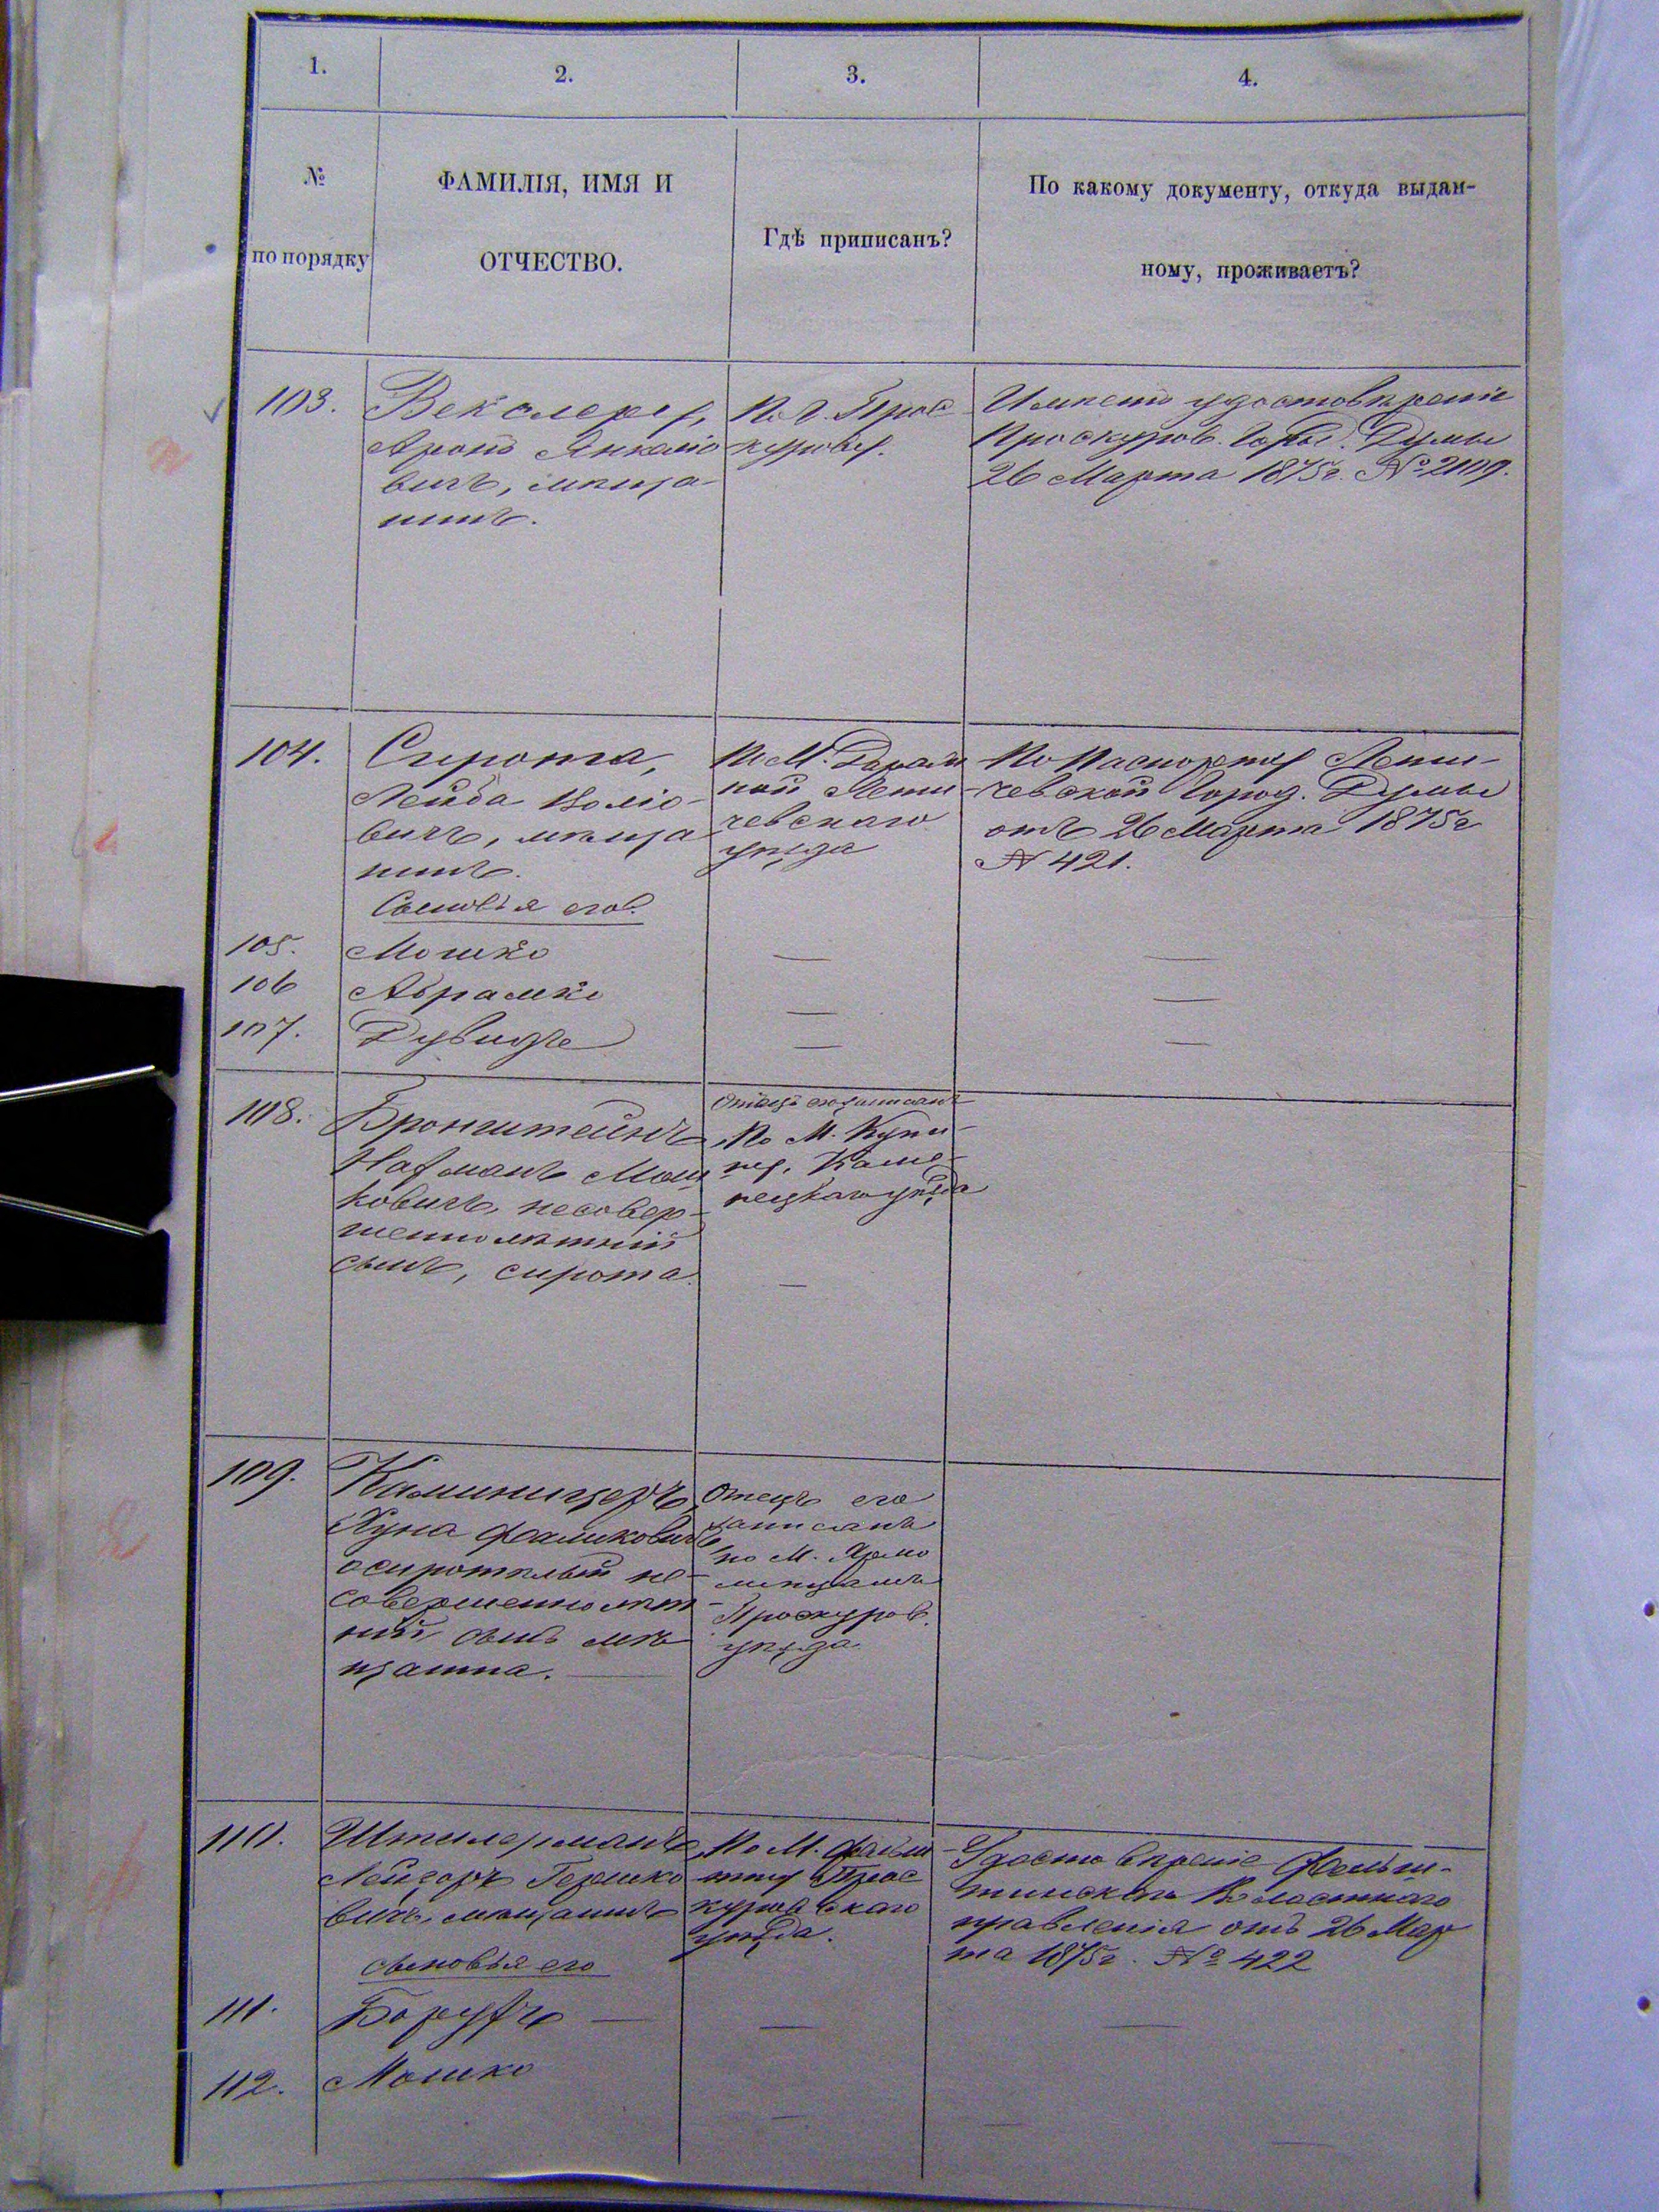 1.
2.
3.
4.
№
по порядку
ФАМИЛІЯ, ИМЯ И
ОТЧЕСТВО.
Гдѣ приписанъ?
По какому документу, откуда выдан-
ному, проживаетъ?
103.
Векслеръ,
Аронъ Янкеліо
вичъ, мѣща-
нинъ.
По г. Прос
курову.
Имѣетъ удостовѣреніе
Проскуров. Город. Думы
26 Марта 1875г. № 2109.
104.
Сирота,
Лейба
вичъ, мѣща
нинъ.
Сыновья его:
По М. Дераж
ной Лети-
чевскаго
уѣзда
По Паспорту Лети-
чевской Город. Думы
отъ 26 Марта 1875г
№ 421.
105.
Мошко
106
Абрамко
107.
Дувидъ
108.
Бронштейнъ
Нахманъ Мош
ковичъ, несовер-
шеннолѣтній
сынъ, сирота.
Отецъ его записанъ
По М. Купи-
ну, Каме-
нецкаго уѣзда
109.
Каминицеръ,
Хуна Фаликовичъ,
осиротѣлый не-
совершеннолѣт-
ній сынъ мѣ
щанина.
Отецъ его
записанъ
по М. Ярмо
линцамъ
Проскуров.
уѣзда.
110.
Штилерманъ
Лейзоръ Гершко
вичъ, мѣщанинъ
сыновья его
По М. Фельш
тину Прос
куровскаго
уѣзда.
Удостовѣреніе Фельш-
тинскаго Волостнаго
правленія отъ 26 Мар
та 1875г. № 422
111.
Борухъ
112.
Мошко